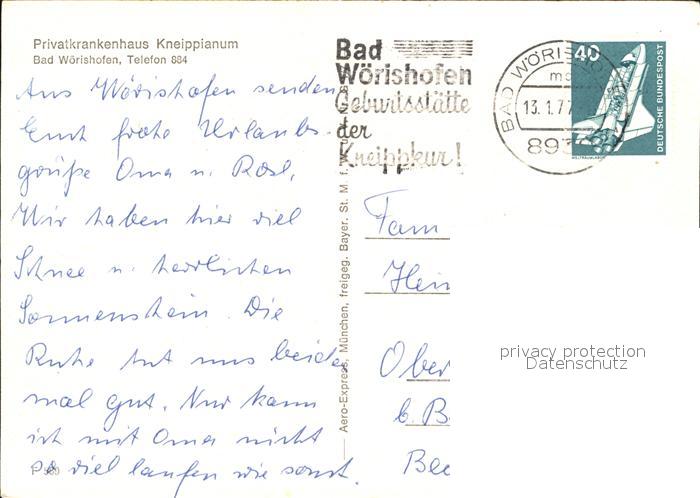 Privatkrankenhaus Kneippianum
Bad Wörishofen, Telefon 884
Aus Wörishofen senden
Euch frohe Urlaubs-
grüße Oma u. Rosl.
Wir haben hier viel
Schnee u. herrlichen
Sonnenschein. Die
Ruhe tut uns beiden
mal gut. Nur kann
ich mit Oma nicht
so viel laufen wie sonst.
Aero-Express, München, freigeg. Bayer. St. M. f.
Bad
Wörishofen
Geburtsstätte
der
Kneippkur!
BAD WÖRIS
13.1.77
893
40
DEUTSCHE BUNDESPOST
WELTRAUMLABOR
Fam
Hein
Ober
b. B
Ble
privacy protection
Datenschutz